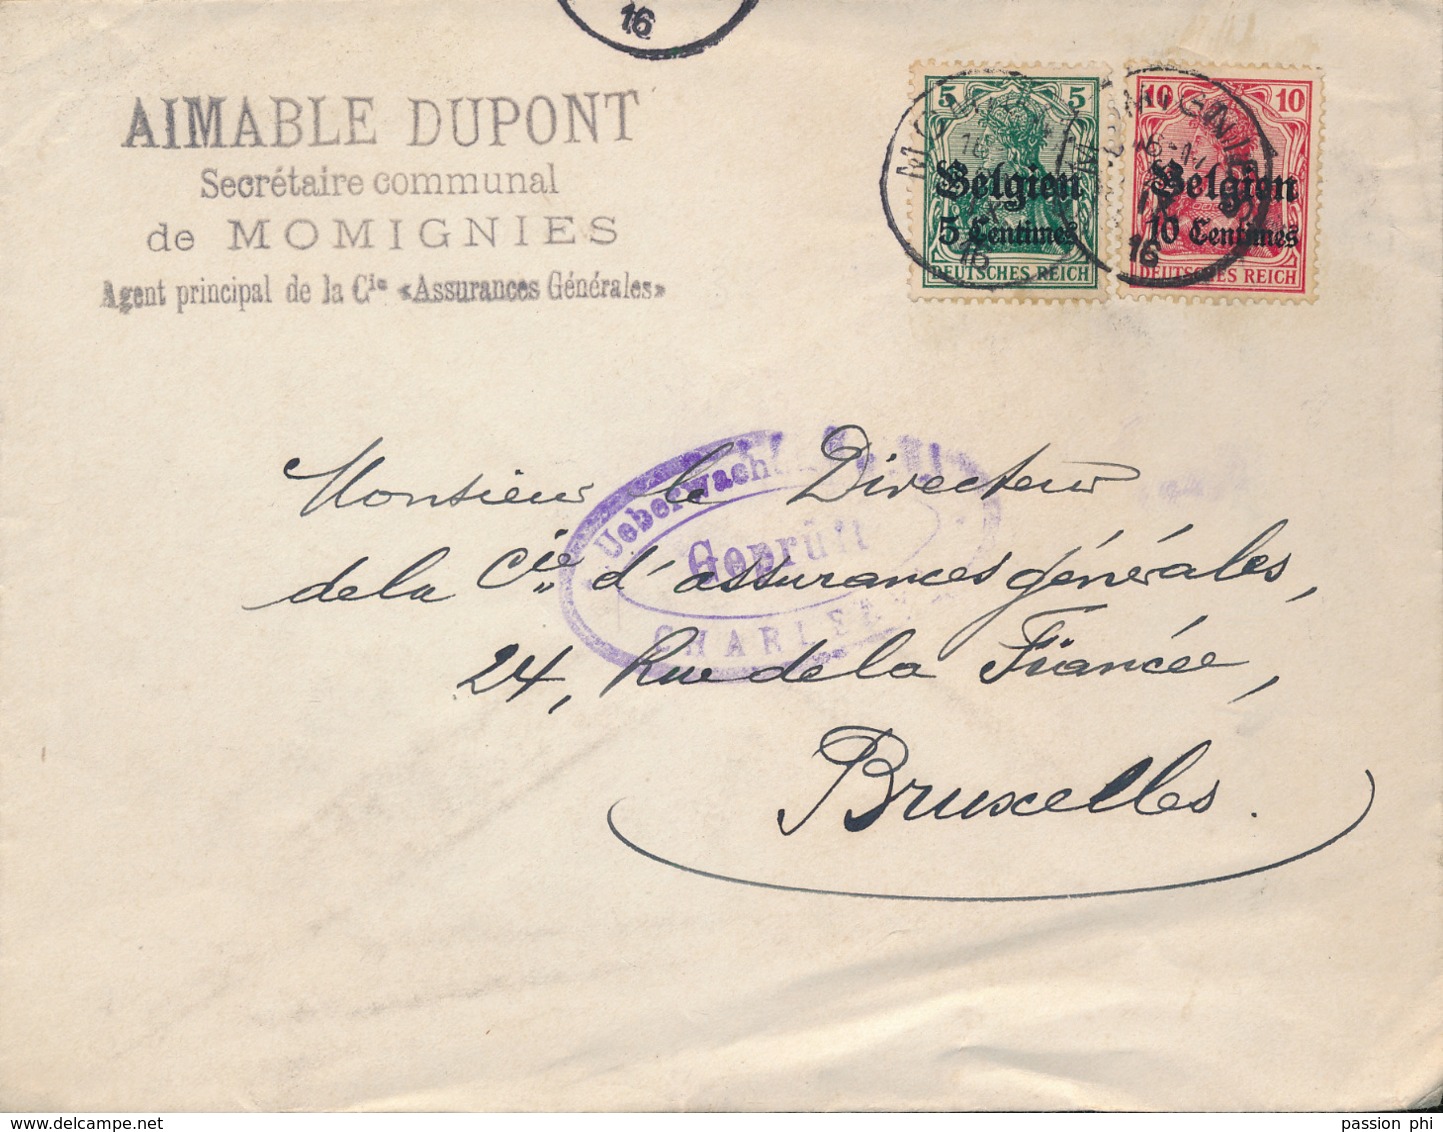 16
AIMABLE DUPONT
Secrétaire communal
de MOMIGNIES
Agent principal de la Cie «Assurances Générales»
5 5
Belgien
5 Centimes
DEUTSCHES REICH
10 10
Belgien
10 Centimes
DEUTSCHES REICH
16
16
Geprüft
Monsieur le Directeur
de la Cie d'assurances générales,
24, Rue de la Fiancée,
Bruxelles.
passion phi